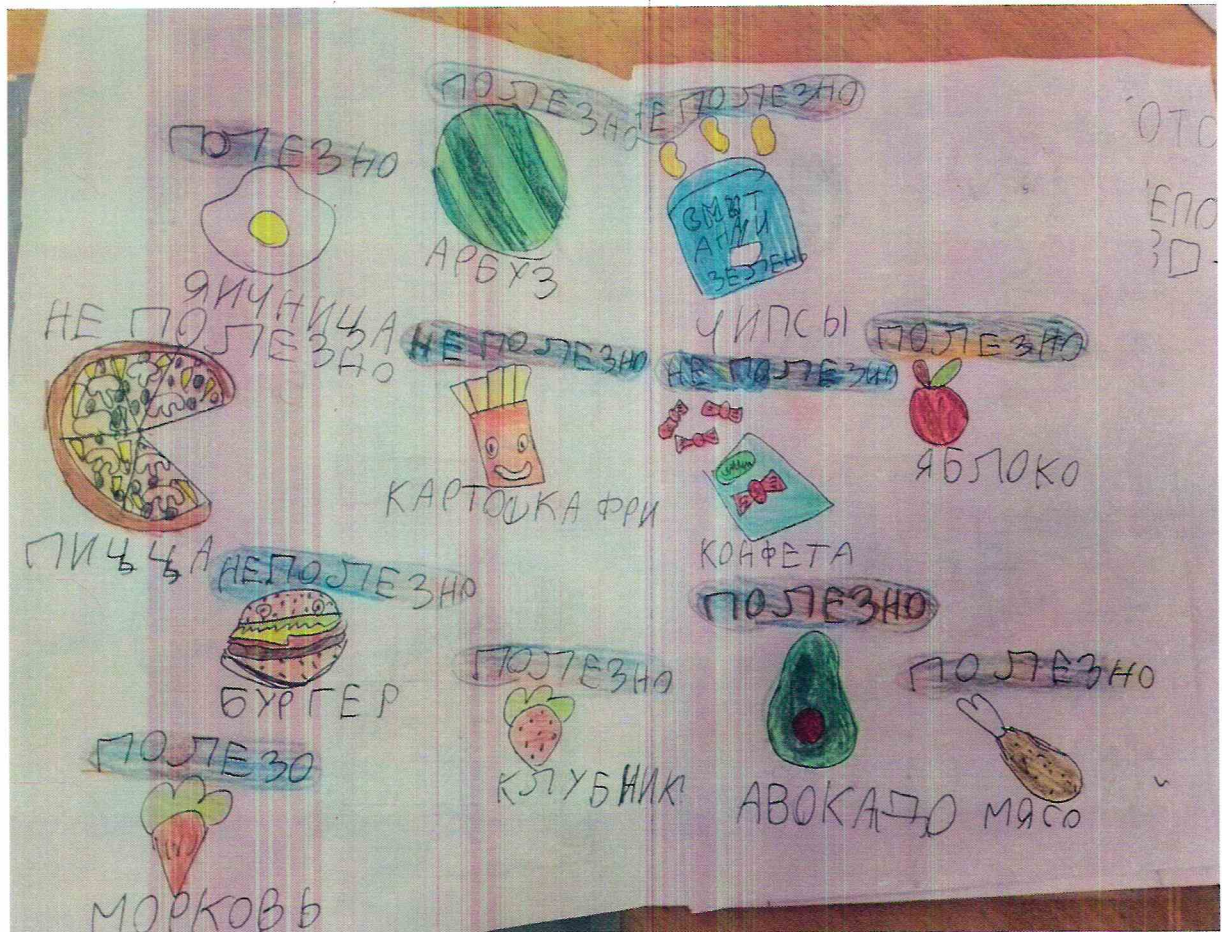 ПОЛЕЗНО
ЯИЧНИЦА
ПОЛЕЗНО
АРБУЗ
НЕ ПОЛЕЗНО
СМЕТ
АНКИ
ЗЕЛЕНЬ
ЧИПСЫ
НЕ ПОЛЕЗНО
ПИЦЦА
НЕ ПОЛЕЗНО
КАРТОШКА ФРИ
НЕ ПОЛЕЗНО
КОНФЕТА
ПОЛЕЗНО
ЯБЛОКО
НЕ ПОЛЕЗНО
БУРГЕР
ПОЛЕЗНО
КЛУБНИК
ПОЛЕЗНО
АВОКАДО
ПОЛЕЗНО
МЯСО
ПОЛЕЗО
МОРКОВЬ